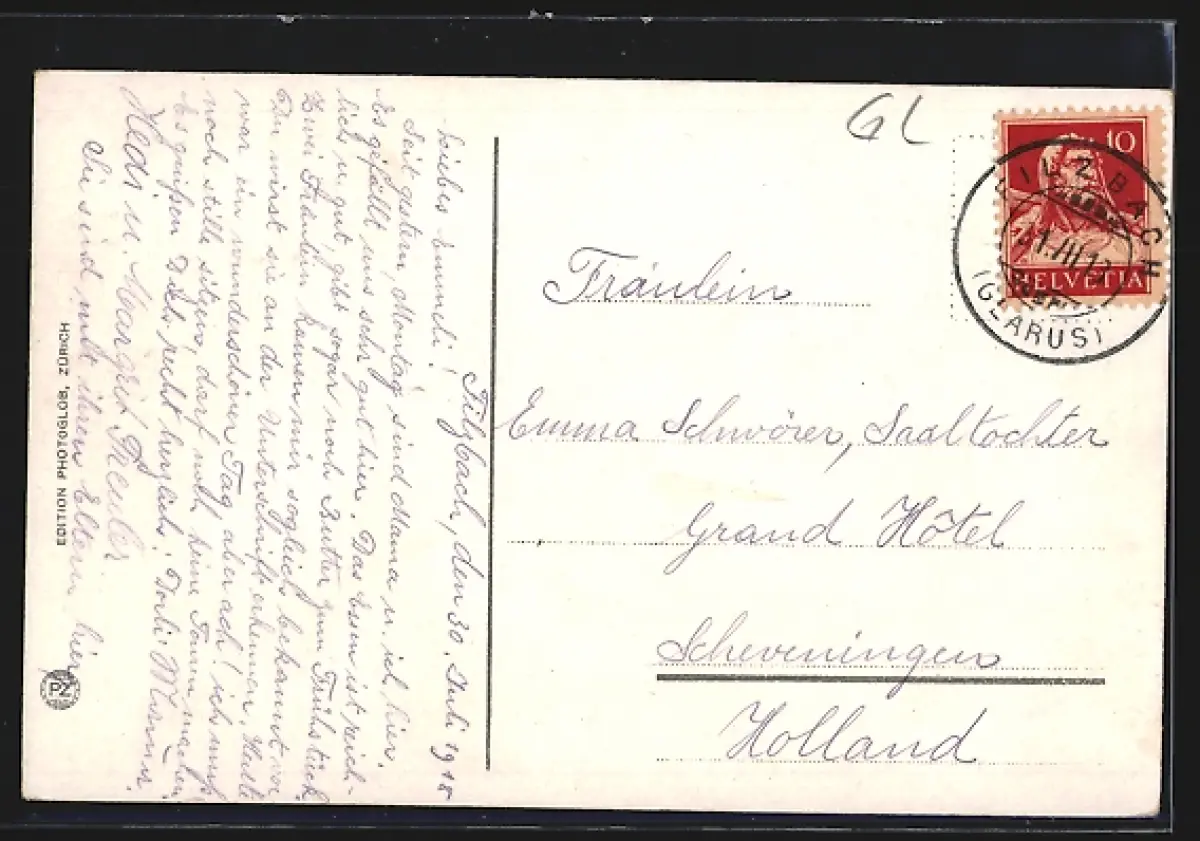 Filzbach, den 30. Juli 1918
Liebes Emmeli!
Seit gestern, Montag sind Mama u. ich hier.
Es gefällt uns sehr gut hier. Das Essen ist reich-
lich u. gut, gibt sogar noch Butter zum Frühstück
Zwei Fräulein kamen mir sogleich bekannt vor
Du wirst sie an der Unterschrift erkennen. Heute
war ein wunderschöner Tag, aber ach! ich muß
noch stille sitzen, darf noch keine machen
Es grüßen Dich recht herzlich! Dorli
Hedi u. Margrit
Sie sind mit ihren Eltern hier
EDITION PHOTOGLOB, ZÜRICH
PZ
GL
10
HELVETIA
FILZBACH
(GLARUS)
Fräulein
Emma Schwörer, Saaltochter
Grand Hôtel
Scheveningen
Holland